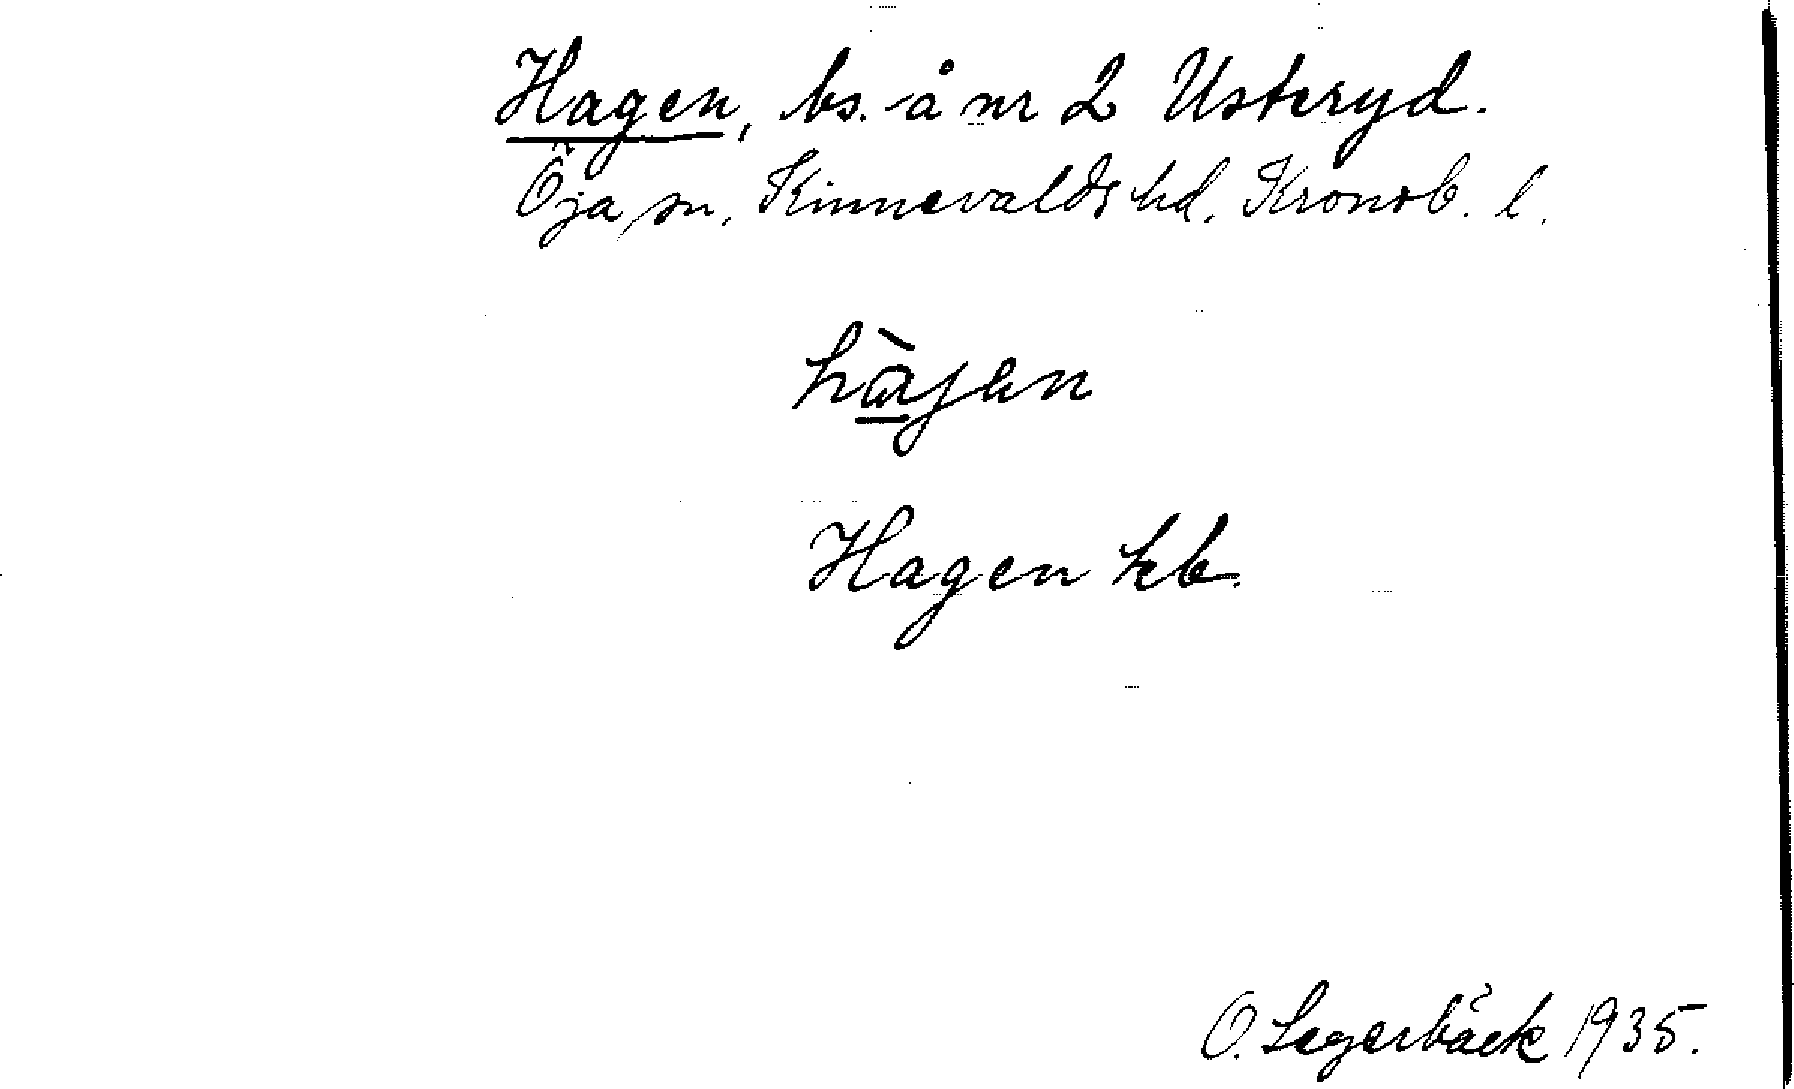 Hagen, bs. å nr 2 Usteryd.
Öja sn, Kinnevalds hd, Kronob. l.
hàjen
Hagen kb.
O. Segerbäck 1935.